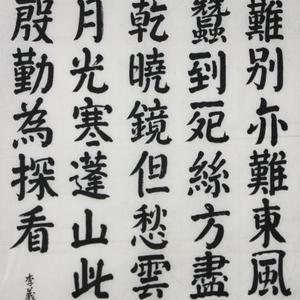 難別亦難東風
蠶到死絲方盡
乾曉鏡但愁雲
月光寒蓬山此
殷勤為探看
李義